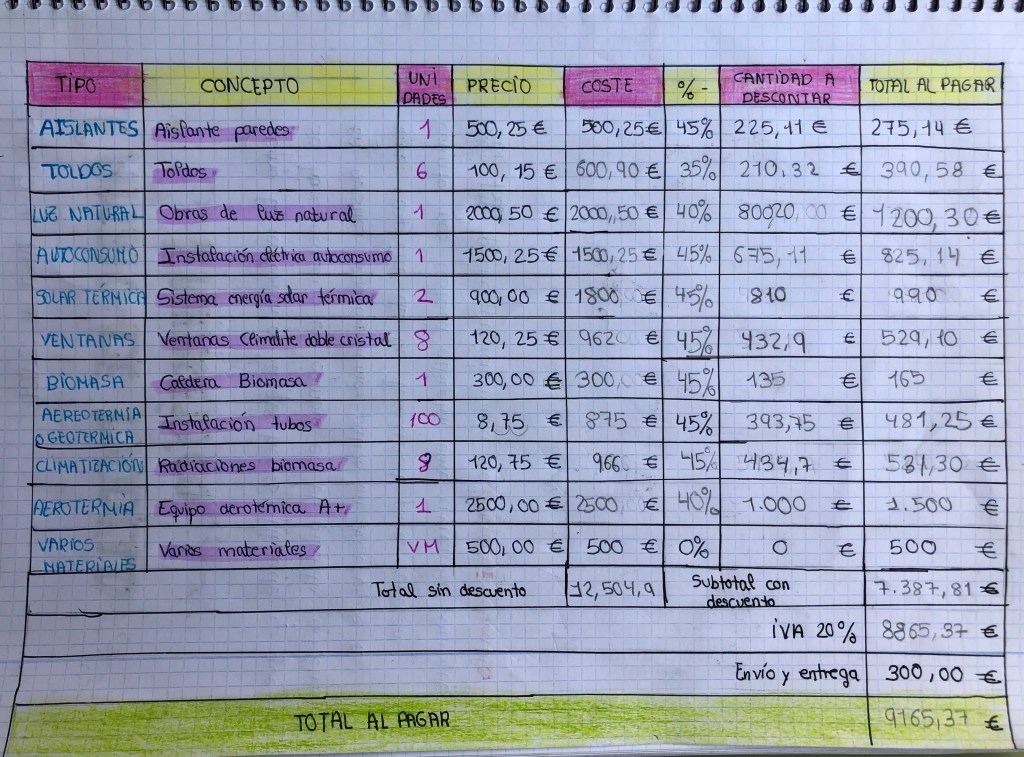 TIPO CONCEPTO UNI DADES PRECIO COSTE %- CANTIDAD A DESCONTAR TOTAL AL PAGAR
AISLANTES Aislante paredes 1 500,25 € 500,25 € 45% 225,11 € 275,14 €
TOLDOS Toldos 6 100,15 € 600,90 € 35% 210,32 € 390,58 €
LUZ NATURAL Obras de luz natural 1 2000,50 € 2000,50 € 40% € 1200,30 €
AUTOCONSUMO Instalación eléctrica autoconsumo 1 1500,25 € 1500,25 € 45% 675,11 € 825,14 €
SOLAR TÉRMICA Sistema energía solar térmica 2 900,00 € 1800 € 45% 810 € 990 €
VENTANAS Ventanas Climalite doble cristal 8 120,25 € 962 € 45% 432,9 € 529,10 €
BIOMASA Caldera Biomasa 1 300,00 € 300 € 45% 135 € 165 €
AEREOTERMIA O GEOTERMICA Instalación tubos 100 8,75 € 875 € 45% 393,75 € 481,25 €
CLIMATIZACIÓN Radiaciones biomasa 8 120,75 € 966 € 45% 434,7 € 531,30 €
AEROTERMIA Equipo aerotérmica A+ 1 2500,00 € 2500 € 40% 1.000 € 1.500 €
VARIOS MATERIALES Varios materiales VM 500,00 € 500 € 0% 0 € 500 €
Total sin descuento 12,504,9 Subtotal con descuento 7.387,81 €
IVA 20% 8865,37 €
Envío y entrega 300,00 €
TOTAL AL PAGAR 9165,37 €